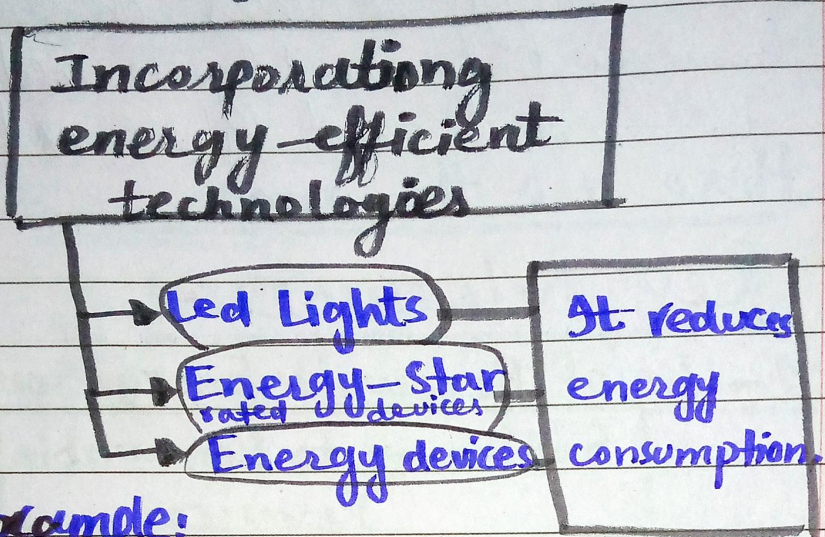 Incorporationg
energy-efficient
technologies
Led Lights
Energy-Star
rated devices
Energy devices
It reduces
energy
consumption.
xample: